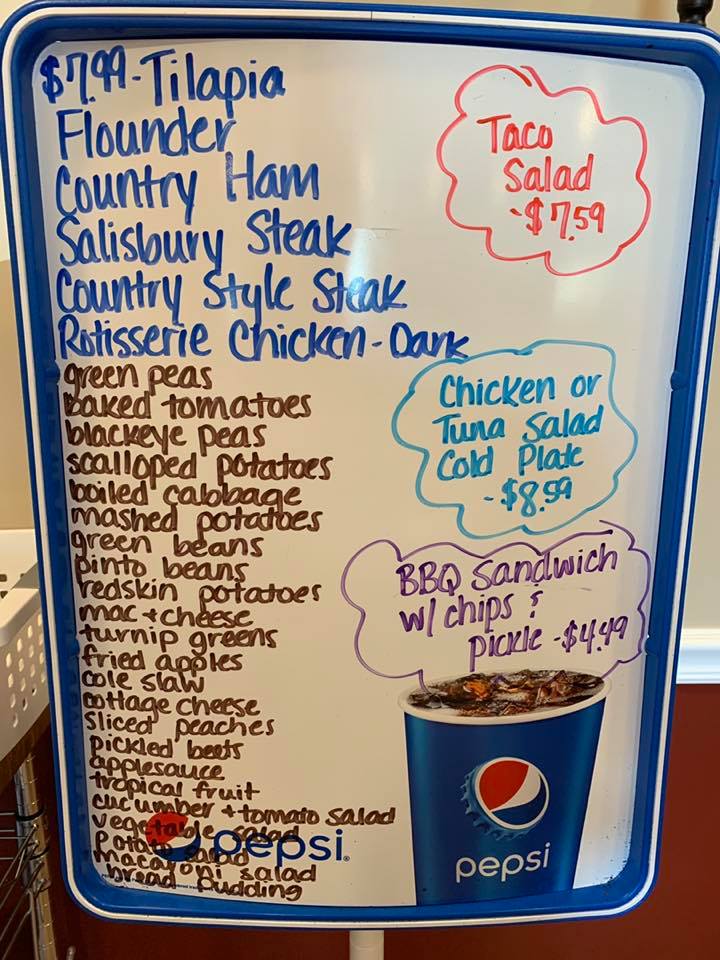 $7.99-Tilapia
Flounder
Country Ham
Salisbury Steak
Country Style Steak
Rotisserie Chicken-Dark
green peas
baked tomatoes
blackeye peas
scalloped potatoes
boiled cabbage
mashed potatoes
green beans
pinto beans
redskin potatoes
mac + cheese
turnip greens
fried apples
cole slaw
cottage cheese
Sliced peaches
pickled beets
applesauce
tropical fruit
cucumber + tomato salad
vegetable salad
potato salad
macaroni salad
bread pudding
Taco
Salad
-$7.59
Chicken or
Tuna Salad
Cold Plate
-$8.59
BBQ Sandwich
w/ chips &
pickle -$4.49
pepsi
pepsi